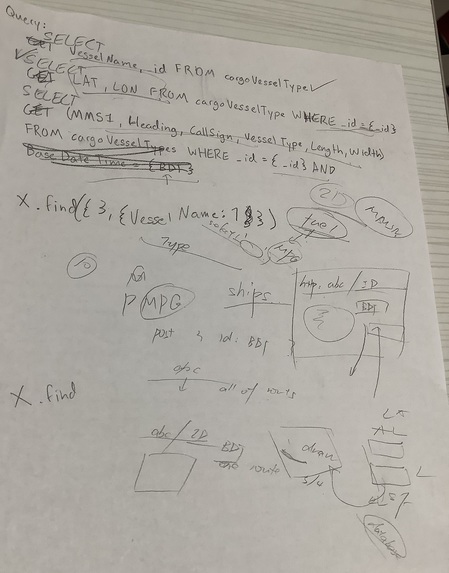 Query:
SELECT
GET VesselName, _id FROM cargoVesselType
SELECT
GET LAT, LON FROM cargoVesselType WHERE _id = {_id}
SELECT
GET (MMSI, Heading, CallSign, VesselType, Length, Width)
FROM cargoVesselTypes WHERE _id = {_id} AND
Base Date Time = {BDT}
X.find({ }, {Vessel Name: 1})
ID
fuel
Type
MPG
10
P MPG
ships
http. abc / ID
BDT
post id: BDT
abc
all of routs
X.find
abc / ID
BDT
route
draw
s/w
L
database